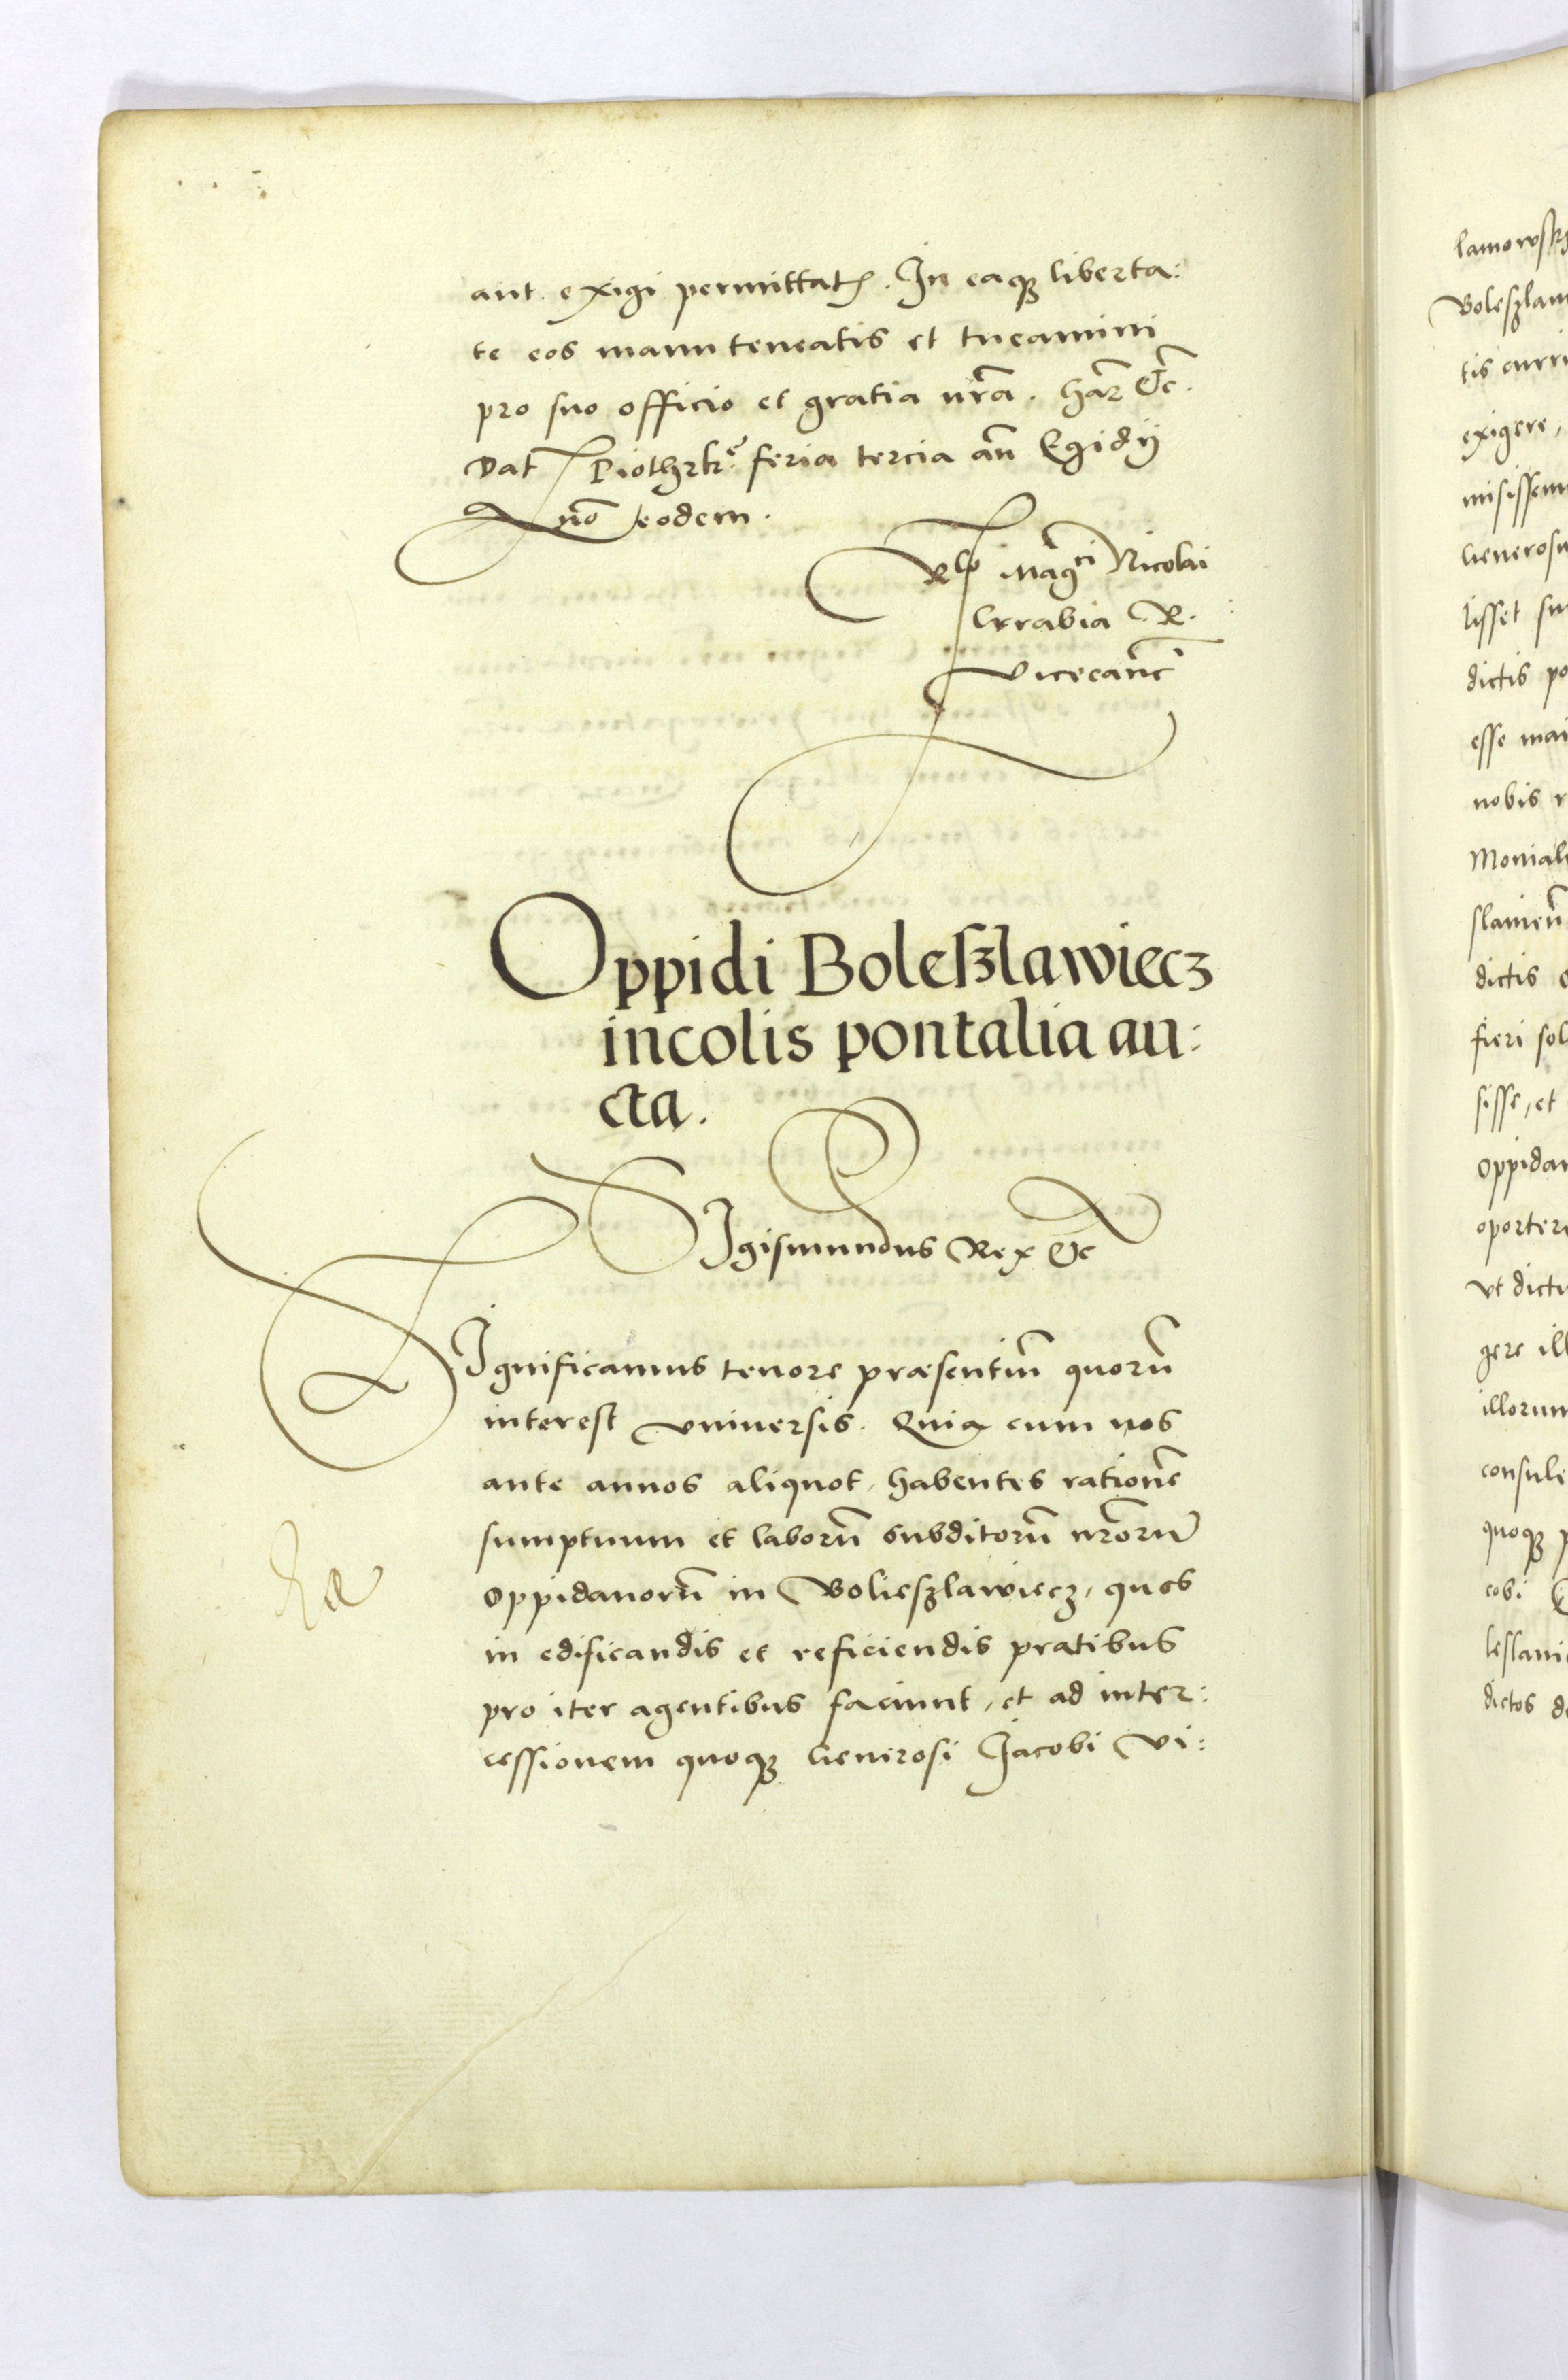 aut exigi permittatis. In eaqz liberta:
te eos manuteneatis et tueamini
pro suo officio et gratia nr̃a. Har̃ &c̃.
Dat Piothrk. feria tercia añ Egidij
Año eodem.
Rlo Magci Nicolai
Grabia R.
Vicecanc̃
Oppidi Boleszlawiecz
incolis pontalia au:
cta.
Sigismundus Rex &c
Significamus tenore præsentiũ quorũ
interest vniuersis. Quia cum nos
ante annos aliquot, habentes rationẽ
sumptuum et laborũ subditorũ nr̃orũ
oppidanorũ in Bolieszlawiecz, quos
in edificandis et reficiendis pratibus
pro iter agentibus faciunt, et ad inter:
cessionem quoqz Generosi Jacobi Vi:
lamowsk
Boleszlaw
tis curru
exigere,
misissem
Generosu
lisset su
dictis po
esse mai
nobis r
Monial
slauieñ
dictis
fieri sol
sisse, et
oppidan
oportere
vt dict
gere ill
illorum
consule
quoqz p
cobi
leslaui
dictos d